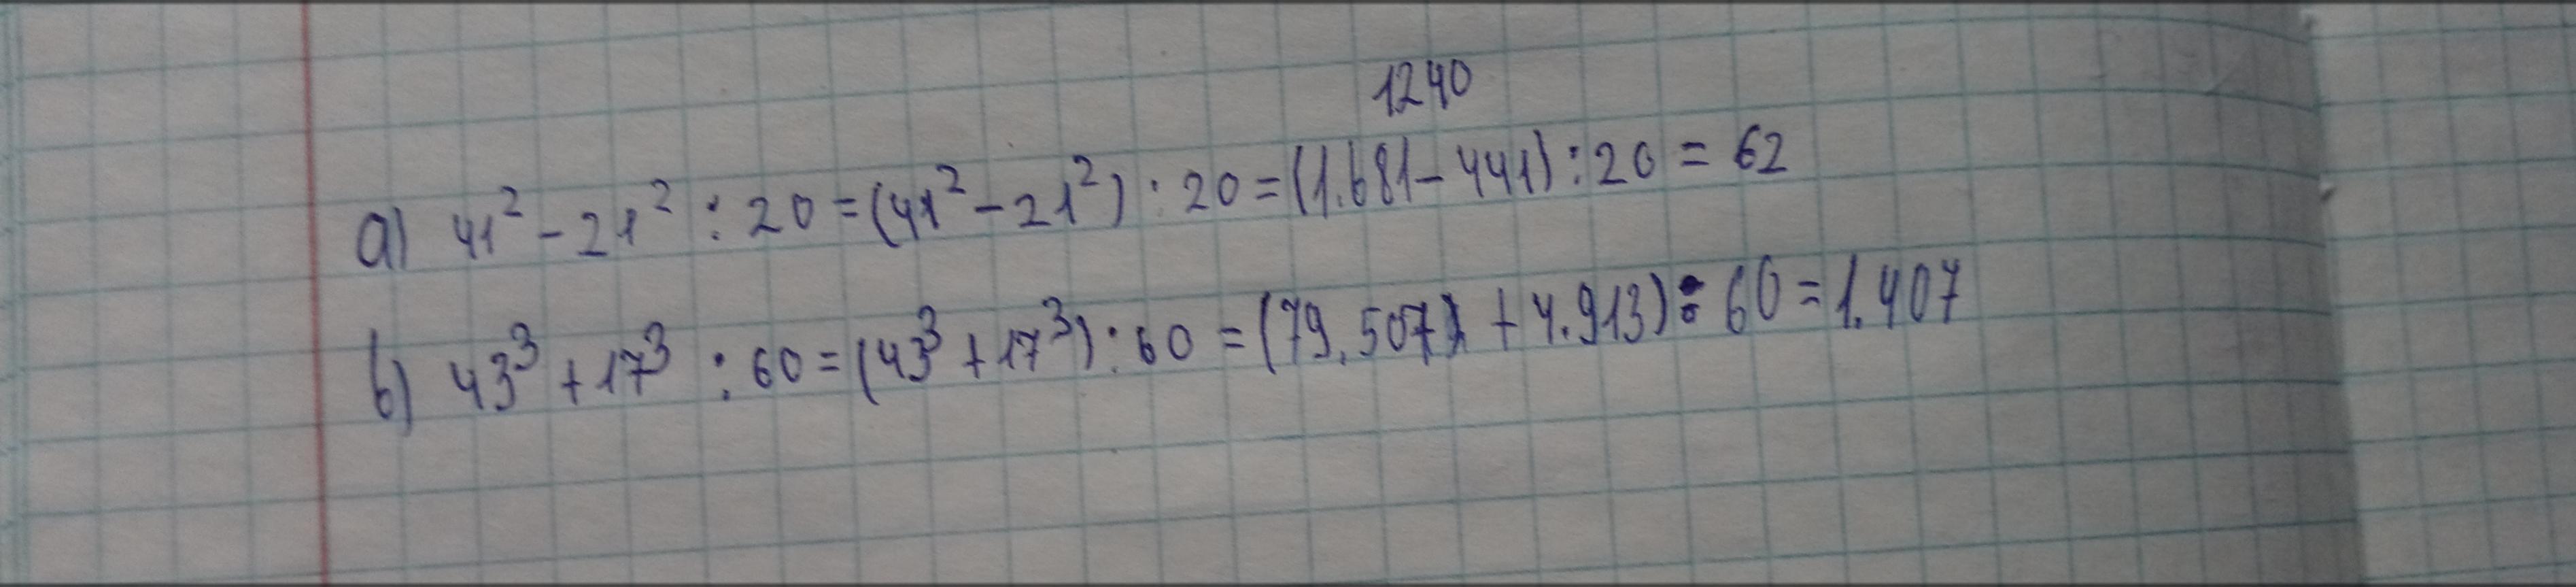 1240
a) 41² - 21² : 20 = (41² - 21²) : 20 = (1.681 - 441) : 20 = 62
b) 43³ + 17³ : 60 = (43³ + 17³) : 60 = (79.507) + 4.913) : 60 = 1.407